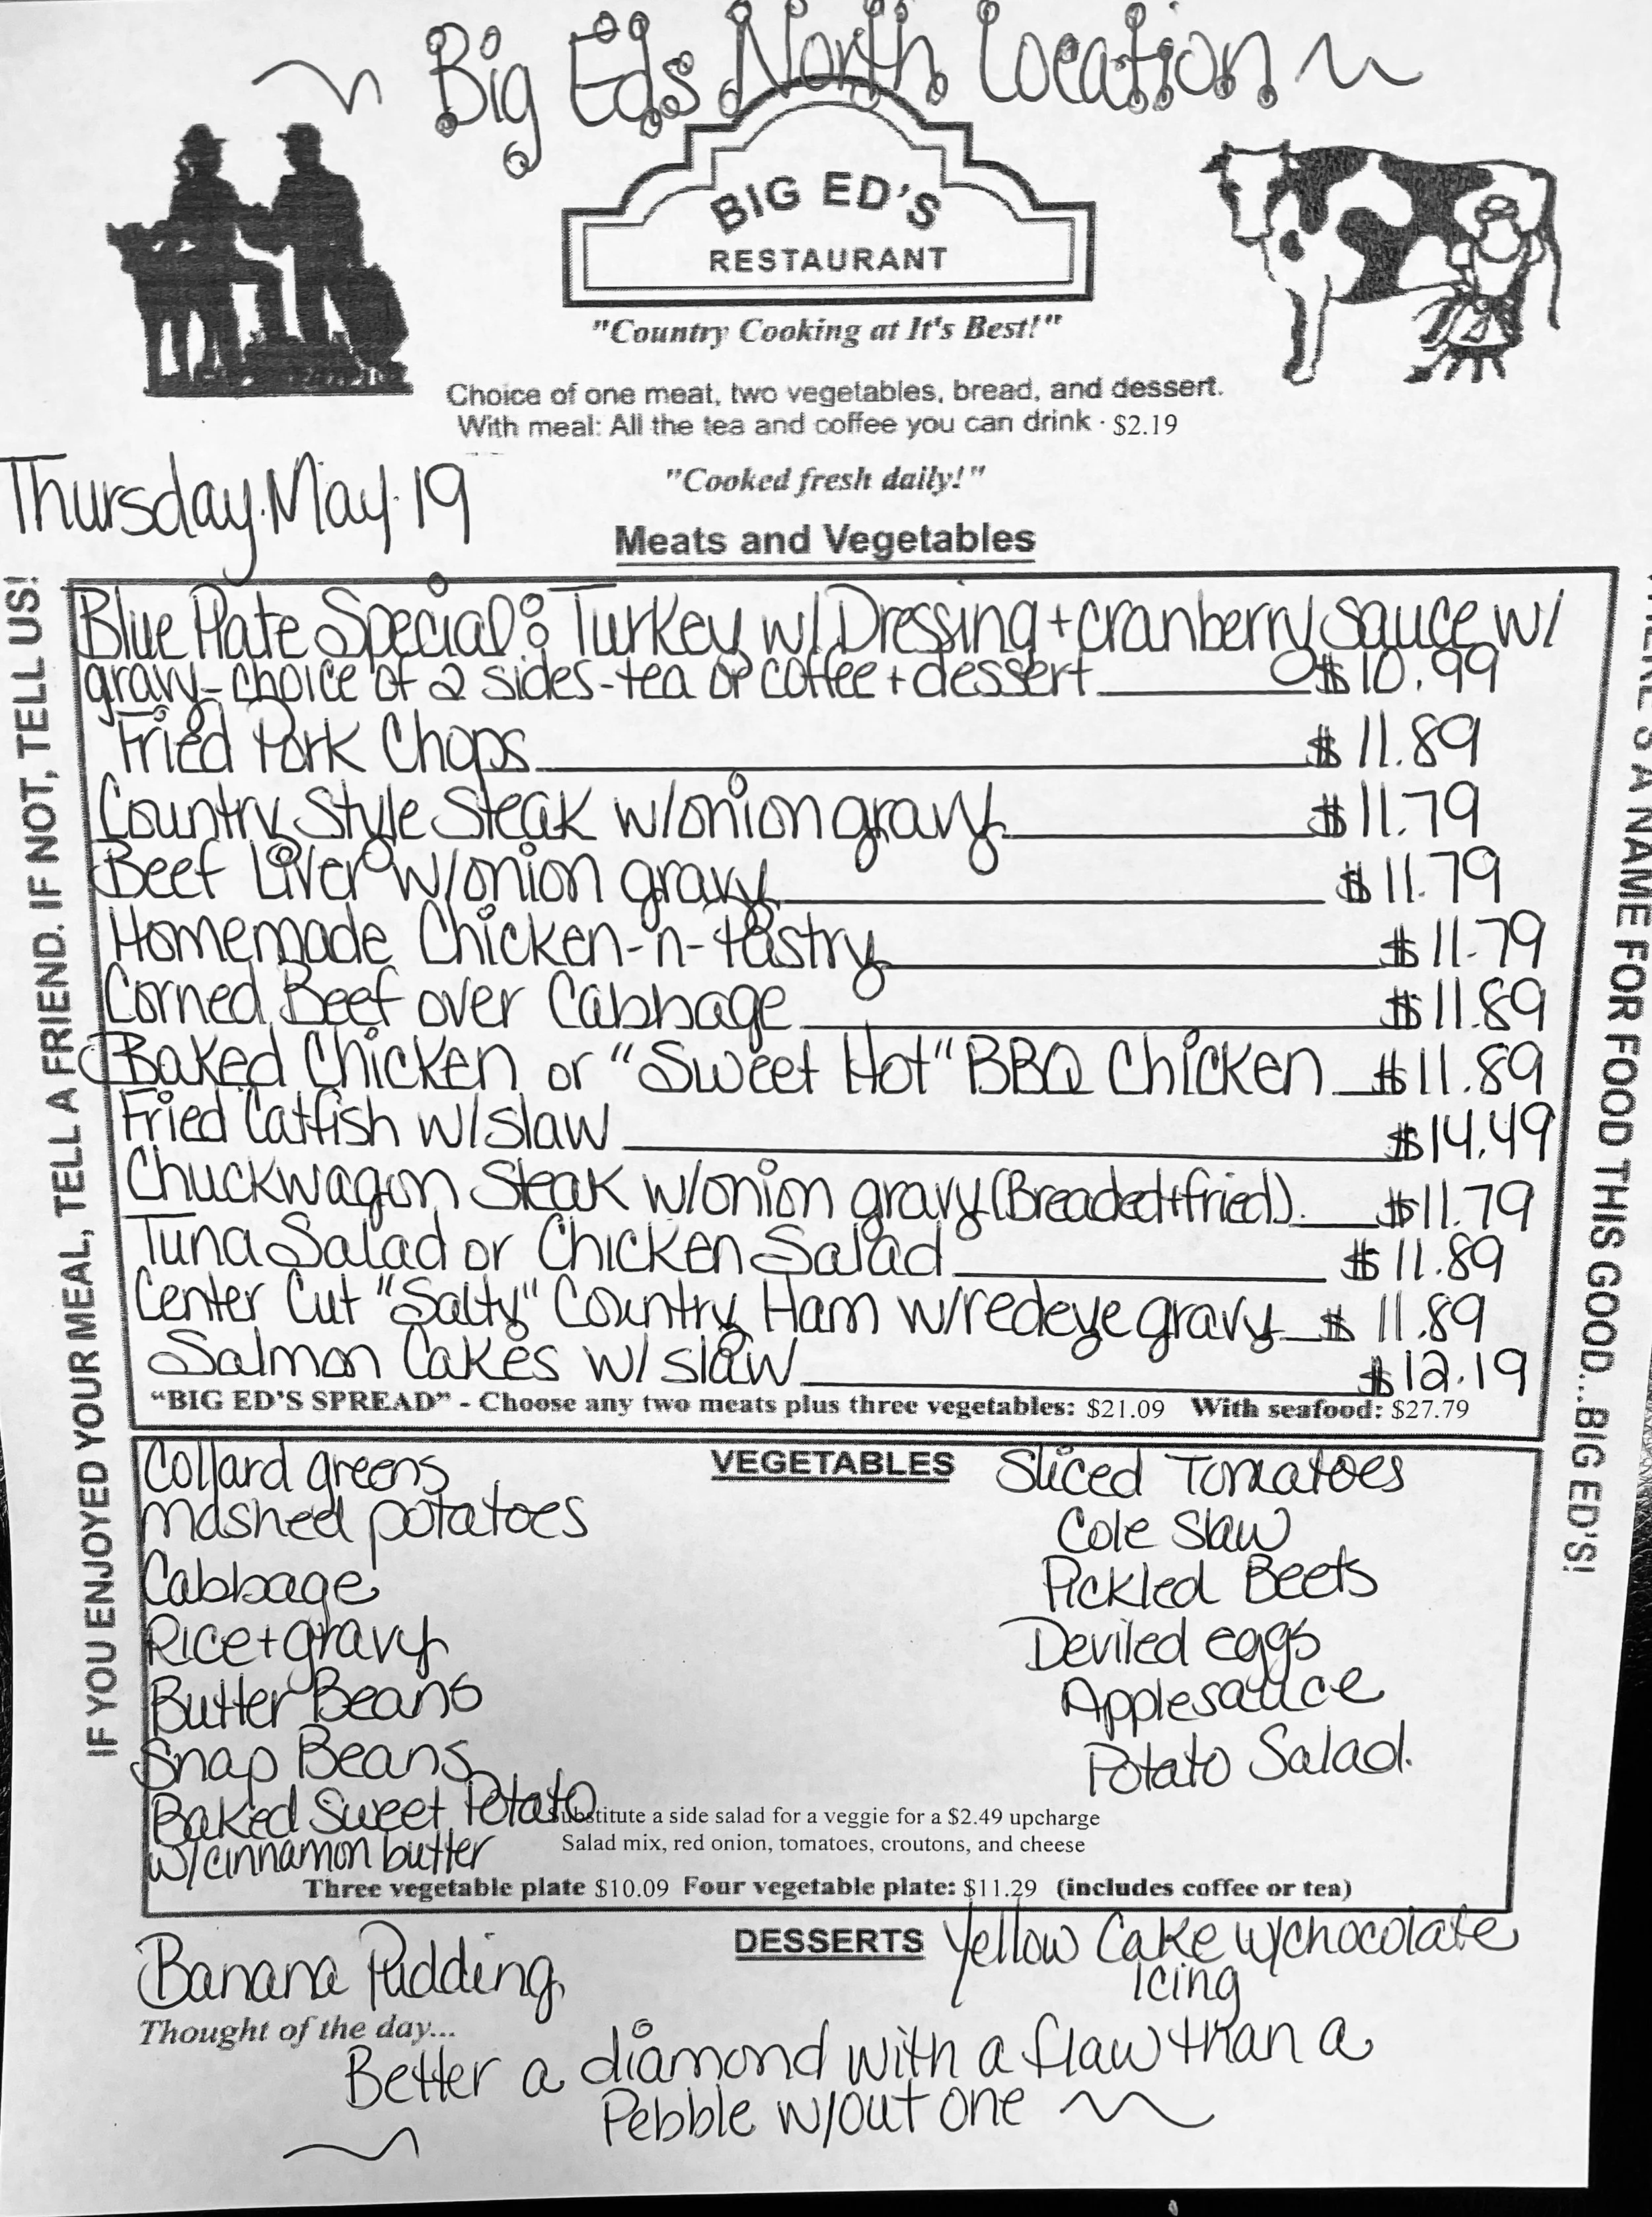 ~ Big Eds North Location ~
BIG ED'S
RESTAURANT
"Country Cooking at It's Best!"
Choice of one meat, two vegetables, bread, and dessert.
With meal: All the tea and coffee you can drink · $2.19
"Cooked fresh daily!"
Thursday. May. 19
Meats and Vegetables
IF YOU ENJOYED YOUR MEAL, TELL A FRIEND. IF NOT, TELL US!
Blue Plate Special: Turkey w/ Dressing + cranberry sauce w/
gravy - choice of 2 sides - tea or coffee + dessert $10.99
Fried Pork Chops $11.89
Country Style Steak w/onion gravy $11.79
Beef Liver w/onion gravy $11.79
Homemade Chicken-n-Pastry $11.79
Corned Beef over Cabbage $11.89
Baked Chicken or "Sweet Hot" BBQ Chicken $11.89
Fried Catfish w/slaw $14.49
Chuckwagon Steak w/onion gravy (Breaded+fried) $11.79
Tuna Salad or Chicken Salad $11.89
Center Cut "Salty" Country Ham w/redeye gravy $11.89
Salmon Cakes w/ slaw $12.19
"BIG ED'S SPREAD" - Choose any two meats plus three vegetables: $21.09 With seafood: $27.79
A NAME FOR FOOD THIS GOOD...BIG ED'S!
VEGETABLES
Collard greens
mashed potatoes
Cabbage
Rice+gravy
Butter Beans
Snap Beans
Baked Sweet Potato
w/cinnamon butter
Sliced Tomatoes
Cole Slaw
Pickled Beets
Deviled eggs
Applesauce
Potato Salad.
Substitute a side salad for a veggie for a $2.49 upcharge
Salad mix, red onion, tomatoes, croutons, and cheese
Three vegetable plate $10.09 Four vegetable plate: $11.29 (includes coffee or tea)
DESSERTS
Banana Pudding
Yellow Cake w/chocolate
icing
Thought of the day...
Better a diamond with a flaw than a
Pebble w/out one ~